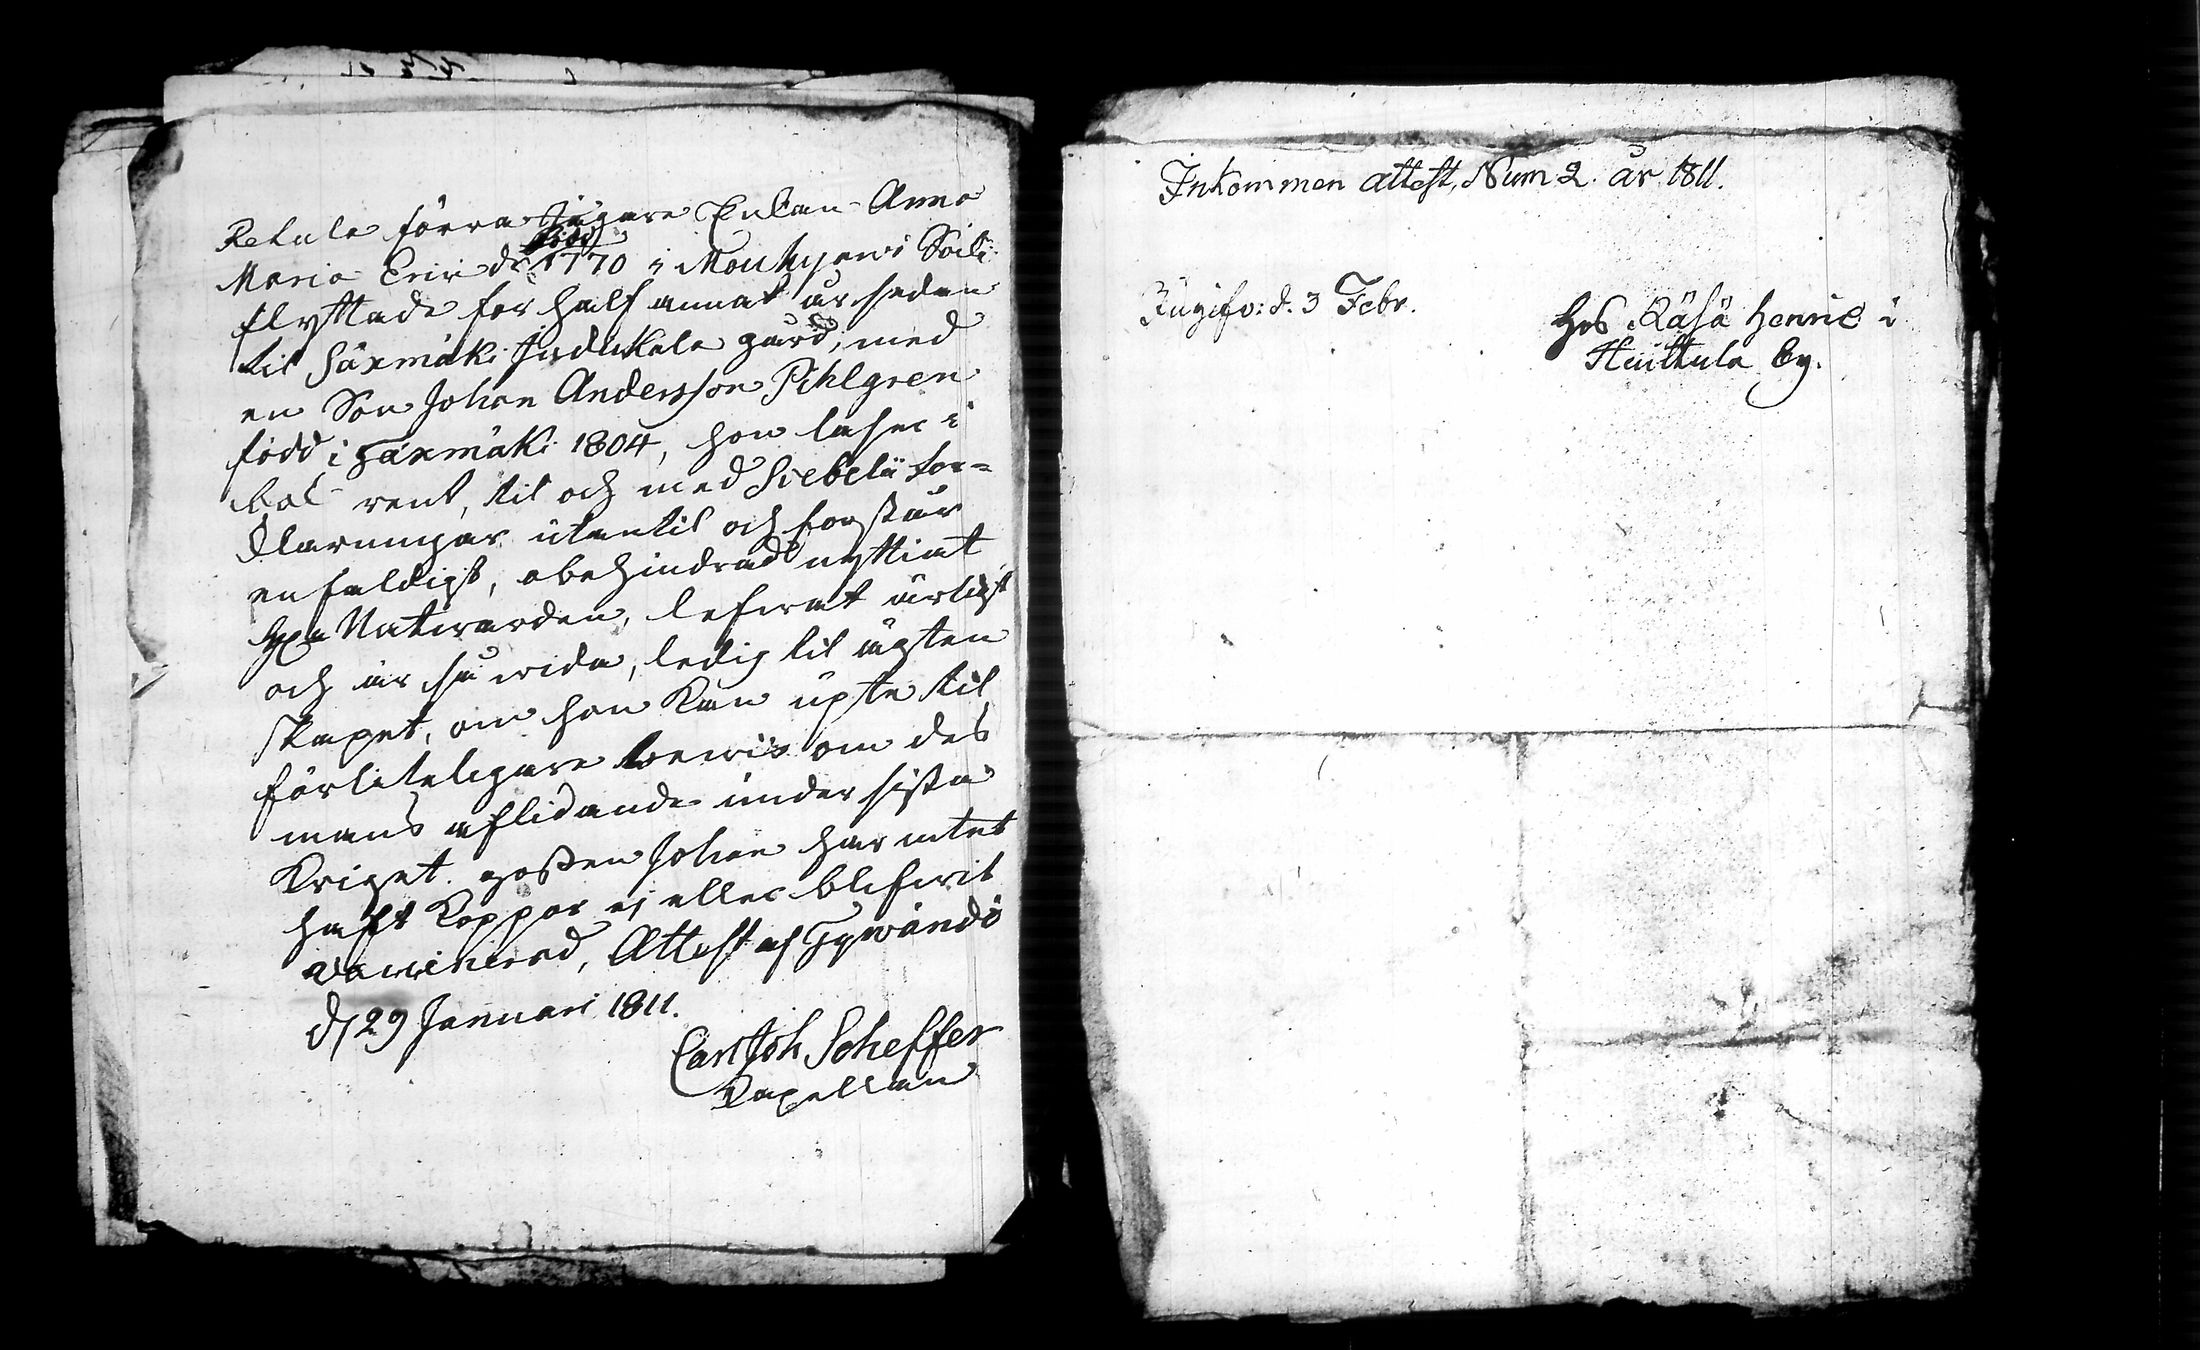 Retula förra Jägare Enkan Anna
Maria Ericsdr född 1770 i Mouhijervi Sock:
flyttade för half annat år sedan
til Säxmäki Jutikala gård, med
en Son Johan Andersson Pihlgren
född i Säxmäki 1804, hon läser i
bok rent, til och med Svebelii för=
klaringar utantil och förstår
enfaldigt, obehindrad nyttiat
H. Natwarden, lefwat ärligt
och är så wida, ledig til ägten
skapet, om hon kan upte til
förliteligare bewis om des
mans aflidande under sista
Kriget. gossen Johan har intet
haft Koppor ej eller blifwit
vaccinerad, Attest af Tyrwändö
d 29 Januari 1811.
Carl Joh Scheffer
Kapellan
Inkommen attest, Num 2. år 1811.
d. 3 Febr.
hos Räsä Henric i
Huittula by.